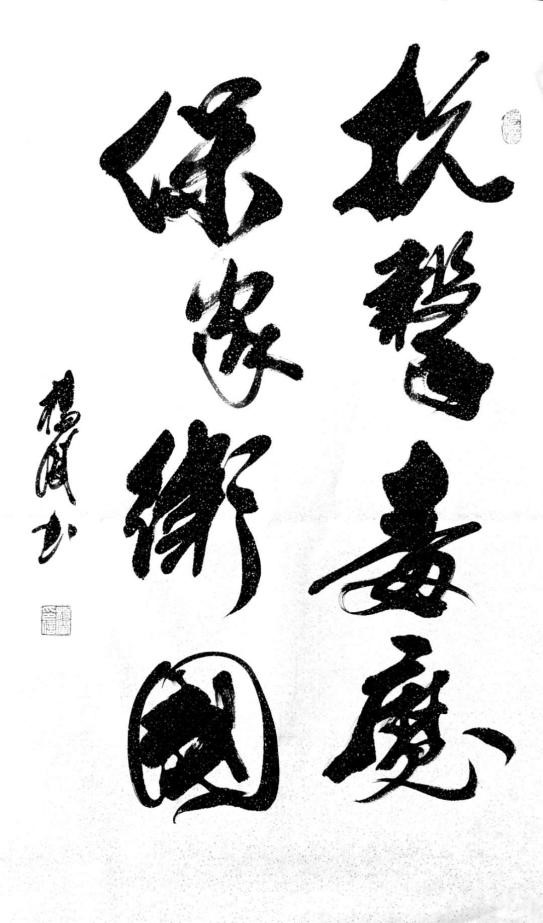 抗擊毒魔
保家衛國
楊成书